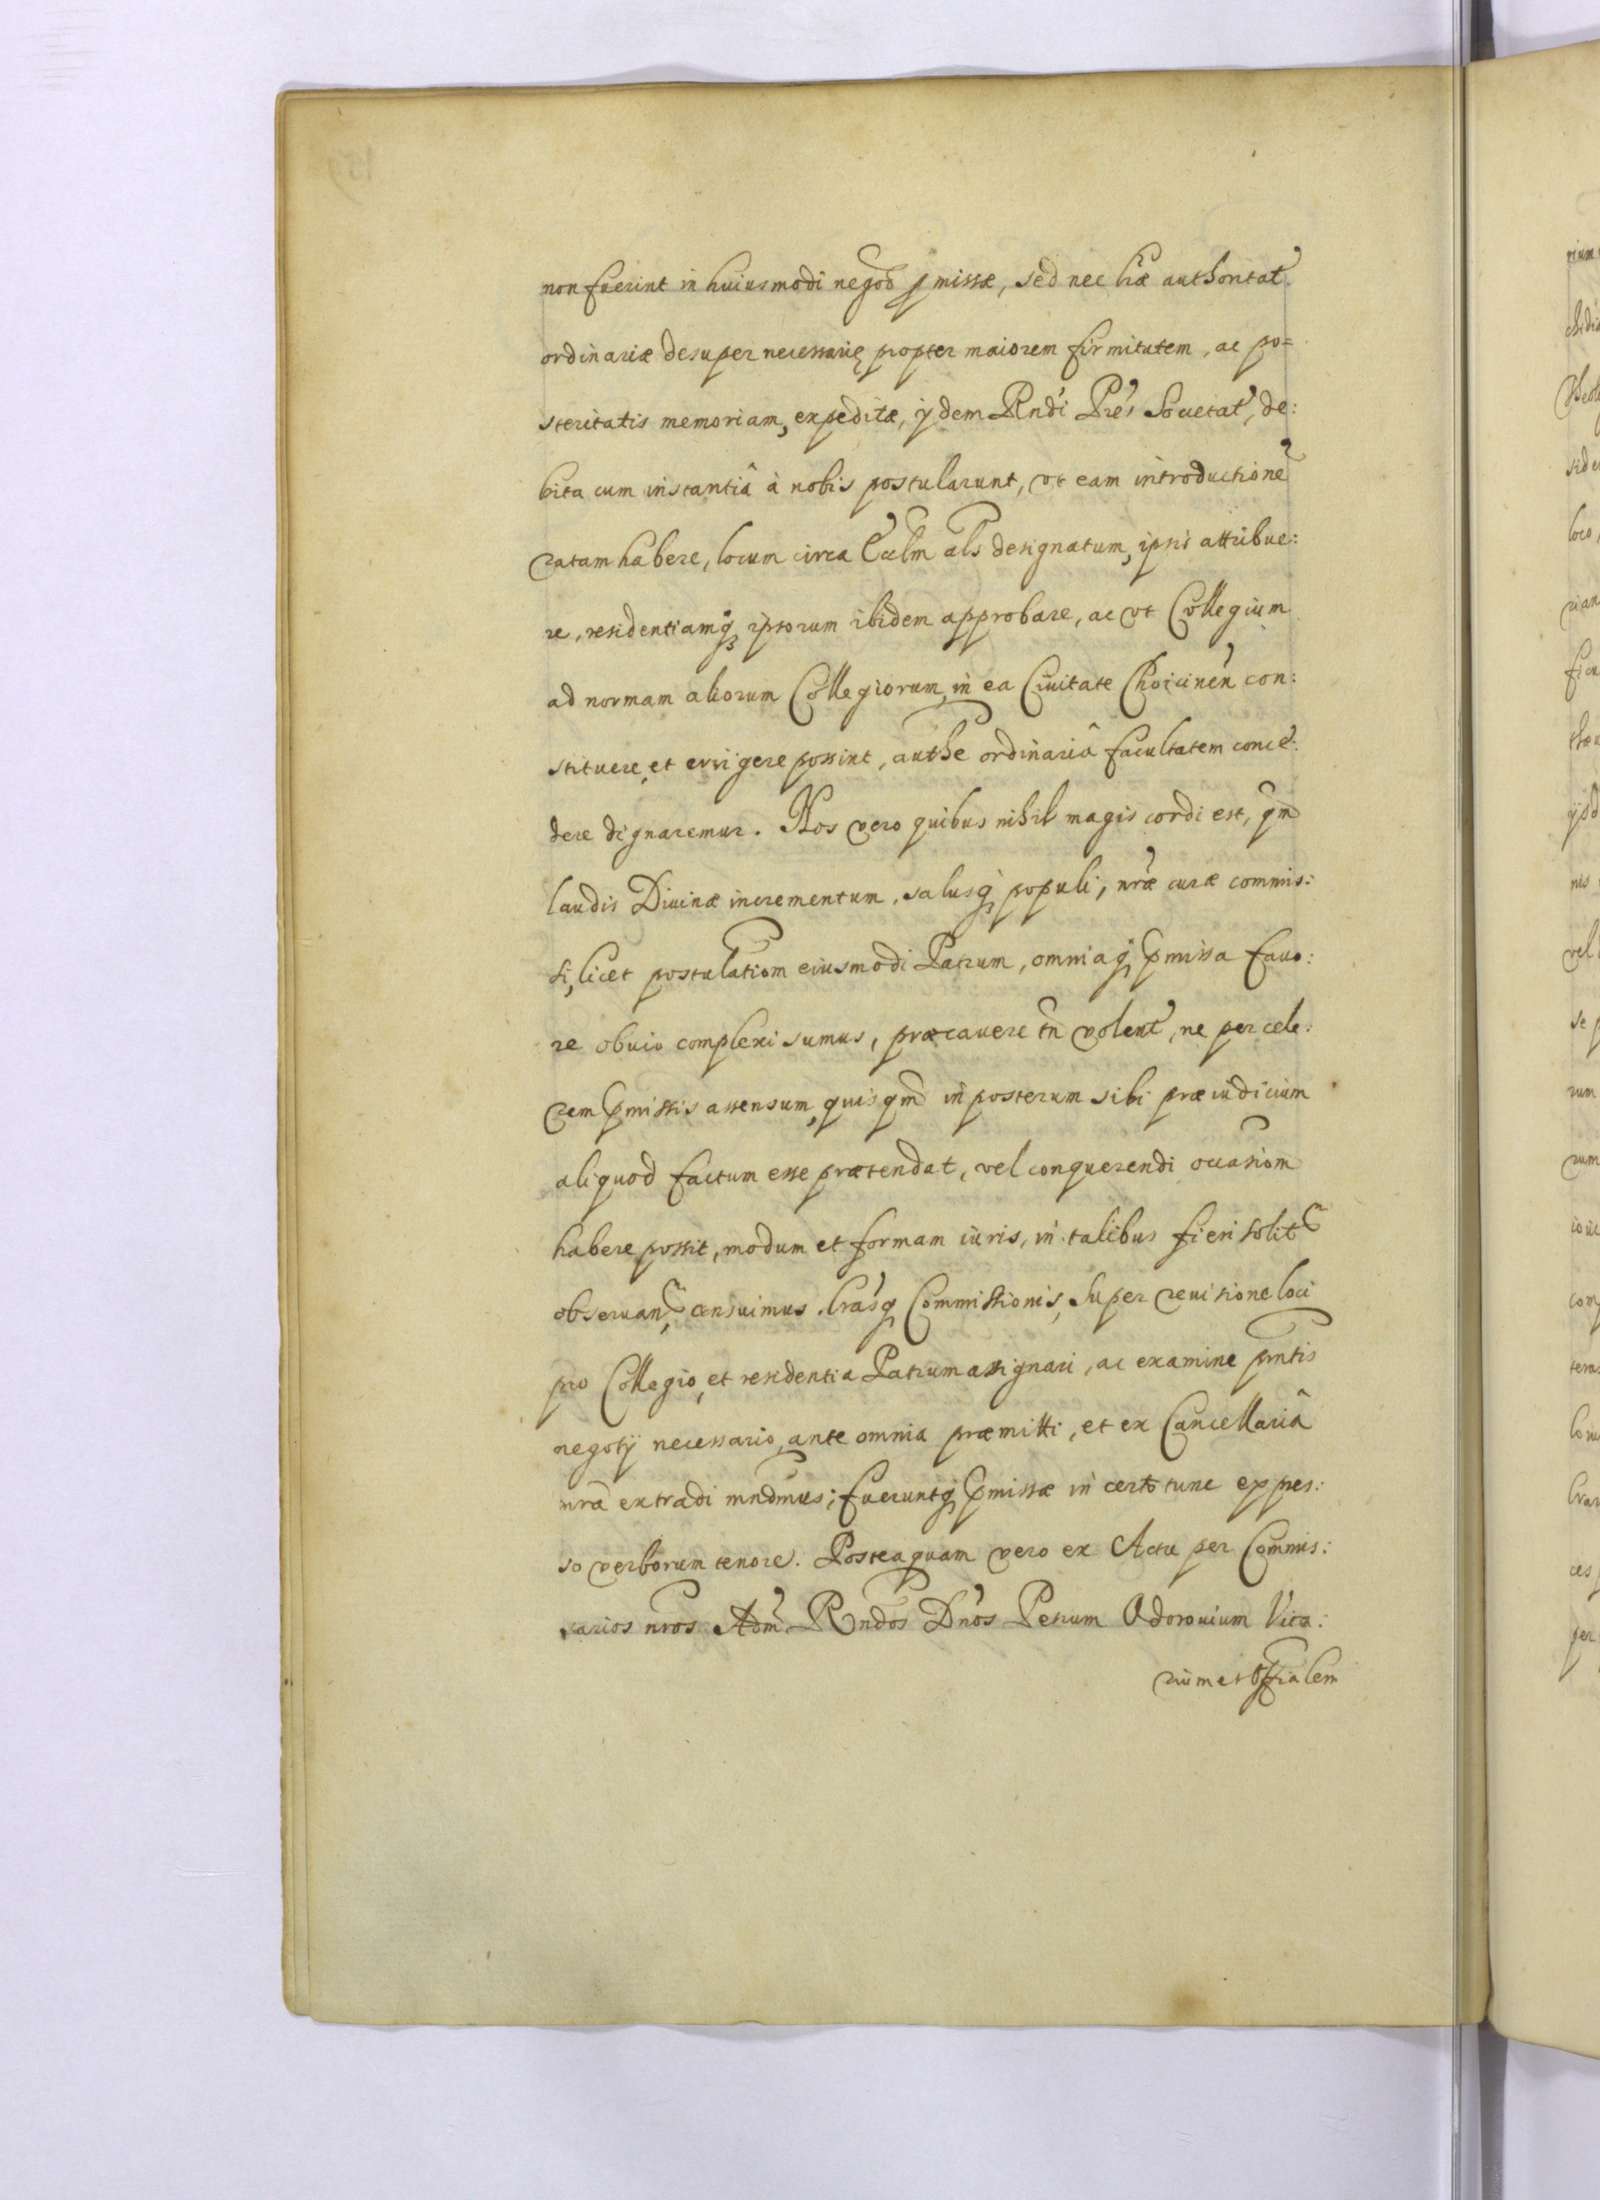 non fuerint in huiusmodi negoõ pmissæ, sed nec lræ authoritat
ordinariæ desuper necessarię propter maiorem firmitatem, ac po=
steritatis memoriam, expeditæ, ijdem Rndi Pres Societat, de:
bita cum instantiâ à nobis postularunt, vt eam introductione
ratam habere, locum circa Eccl̃m als designatum, ipsis attribue:
re, residentiamq ipsorum ibidem approbare, ac vt Collegium
ad normam aliorum Collegiorum in ea Ciuitate Choicinen con:
stituere, et errigere possint, authe ordinariâ facultatem conce:
dere dignaremur. Nos vero quibus nihil magis cordi est, qm
laudis Diuinæ incrementum, salusq populi, nræ curæ commis:
si, licet postulatiom eiusmodi Patrum, omniaq pmissa fauo:
re obuio complexi sumus, præcauere tn volent, ne per cele:
rem pmissis assensum, quisqm in posterum sibi præiudicium
aliquod factum esse prætendat, vel conquerendi occasiom
habere possit, modum et formam iuris, in talibus fieri solit
obseruan, censuimus. Lrasq Commissionis, super reuisione loci
pro Collegio, et residentia Patrum assignari, ac examine pntis
negotij necessario, ante omnia præmitti, et ex Cancellariâ
nrã extradi mndmus; fueruntq pmissæ in certo tunc expres:
so verborum tenore. Posteaquam vero ex Actu per Commis:
sarios nros Adm Rndos Dnos Petrum Odorouium Vica:
rium et Offialem